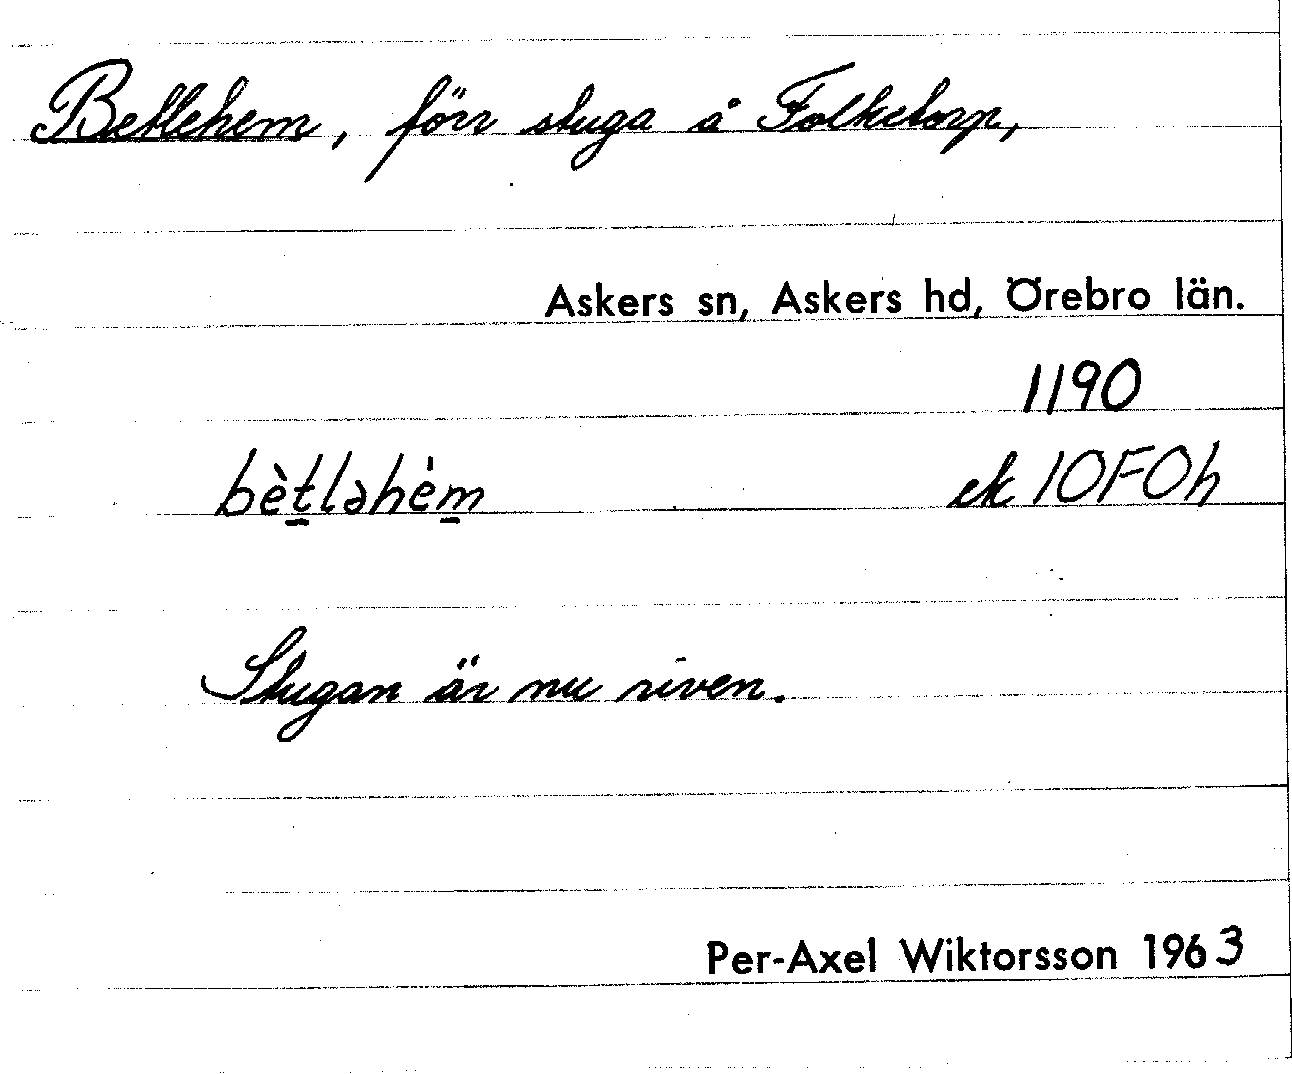 Betlehem, förr stuga å Folketorp,
Askers sn, Askers hd, Örebro län.
1190
bèt̲ləhėm̲ ek 10F0h
Stugan är nu riven.
Per-Axel Wiktorsson 1963